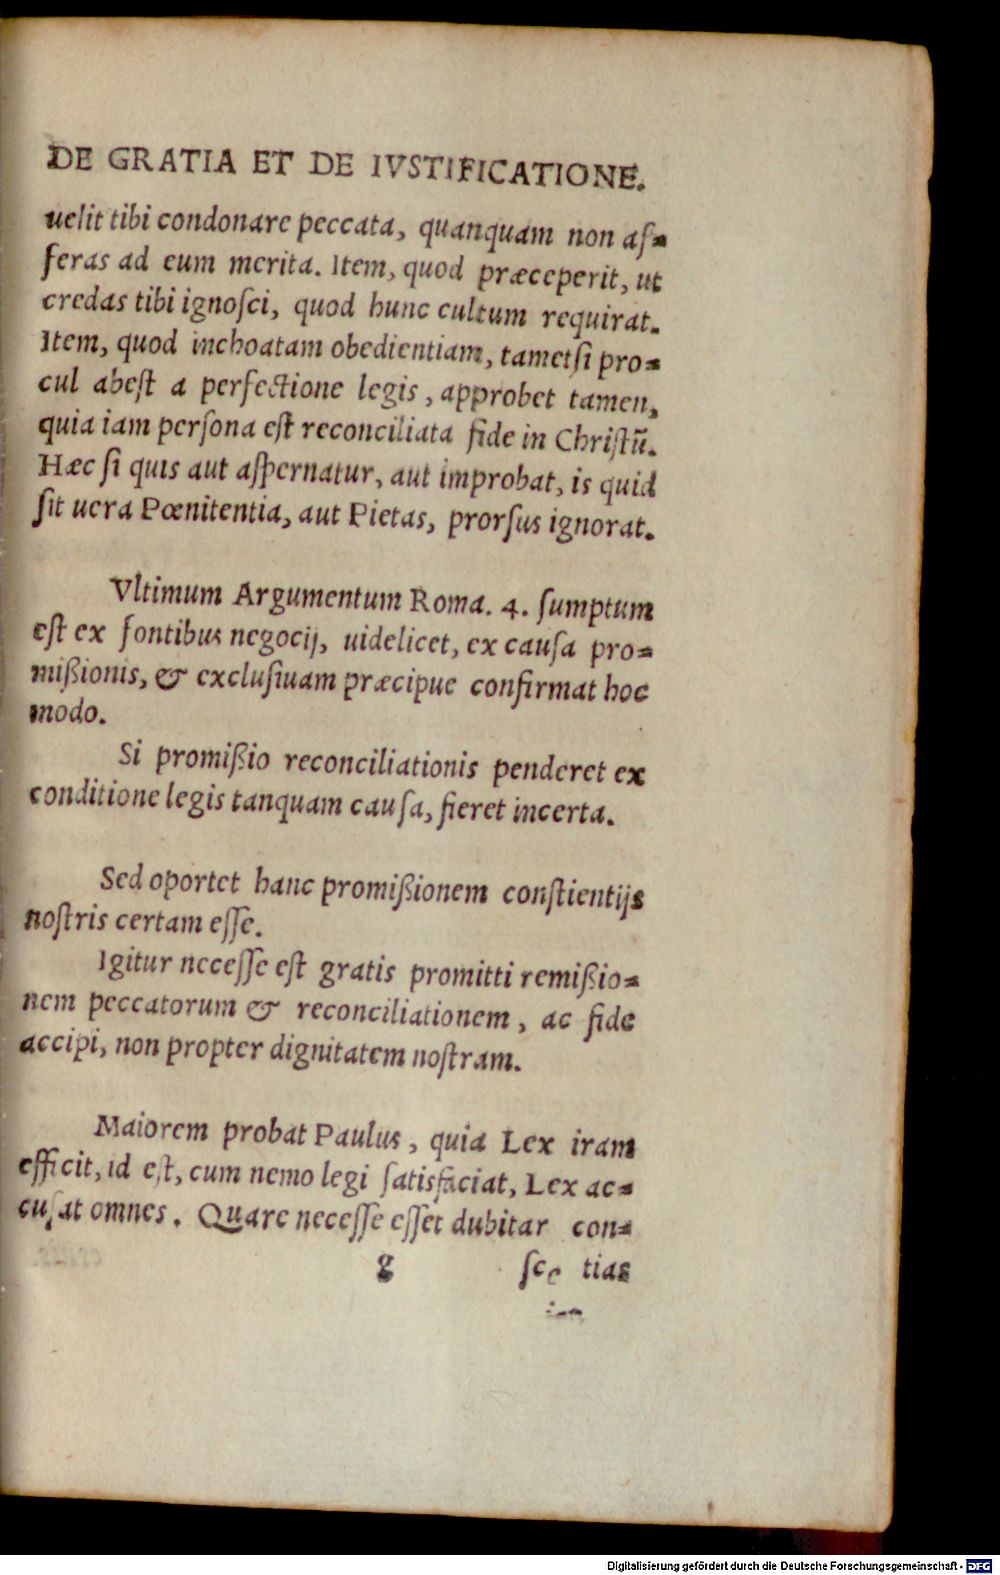 DE GRATIA ET DE IVSTIFICATIONE.
uelit tibi condonare peccata, quanquam non aſ⸗
feras ad eum merita. Item, quod præceperit, ut
credas tibi ignoſci, quod hunc cultum requirat.
Item, quod inchoatam obedientiam, tametſi pro⸗
cul abeſt a perfectione legis, approbet tamen,
quia iam perſona eſt reconciliata fide in Chriſtũ.
Hæc ſi quis aut aſpernatur, aut improbat, is quid
ſit uera Pœnitentia, aut Pietas, prorſus ignorat.
Vltimum Argumentum Roma. 4. ſumptum
eſt ex fontibus negocij, uidelicet, ex cauſa pro⸗
mißionis, & excluſiuam præcipue confirmat hoc
modo.
Si promißio reconciliationis penderet ex
conditione legis tanquam cauſa, fieret incerta.
Sed oportet hanc promißionem conſtientijs
noſtris certam eſſe.
Igitur neceſſe eſt gratis promitti remißio⸗
nem peccatorum & reconciliationem, ac fide
accipi, non propter dignitatem noſtram.
Maiorem probat Paulus, quia Lex iram
efficit, id eſt, cum nemo legi ſatisfaciat, Lex ac⸗
cuſat omnes. Quare neceſſe eſſet dubitar con⸗
g tias
Digitalisierung gefördert durch die Deutsche Forschungsgemeinschaft - DFG